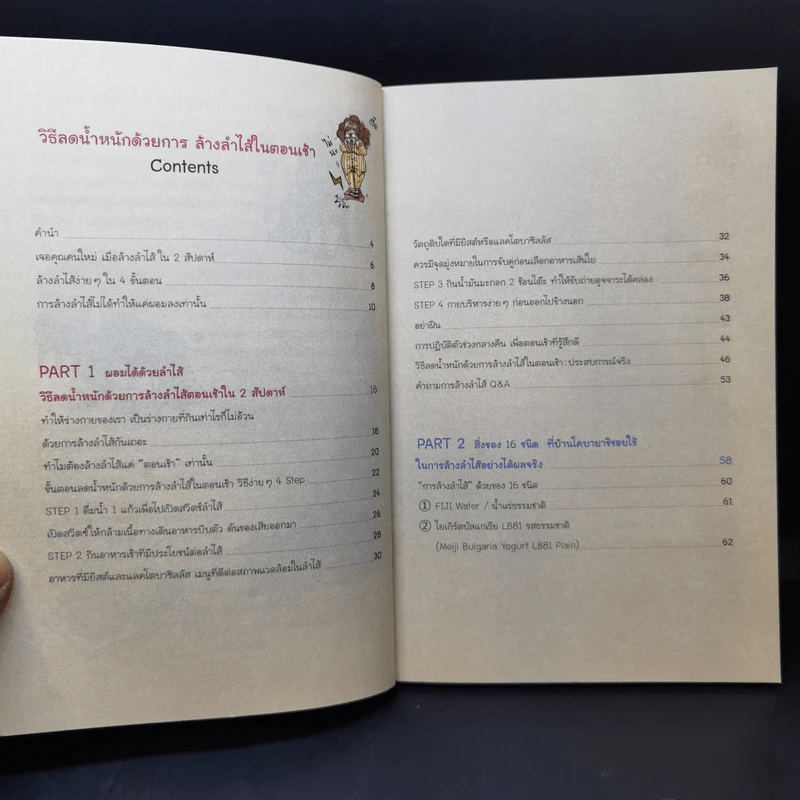 วิธีลดน้ำหนักด้วยการ ล้างลำไส้ในตอนเช้า
Contents
ไม่
นะ
คำนำ 4
เจอคุณคนใหม่ เมื่อล้างลำไส้ ใน 2 สัปดาห์ 6
ล้างลำไส้ง่ายๆ ใน 4 ขั้นตอน 8
การล้างลำไส้ไม่ได้ทำให้แค่ผอมลงเท่านั้น 10
PART 1 ผอมได้ด้วยลำไส้
วิธีลดน้ำหนักด้วยการล้างลำไส้ตอนเช้าใน 2 สัปดาห์ 16
ทำให้ร่างกายของเรา เป็นร่างกายที่กินเท่าไรก็ไม่อ้วน
ด้วยการล้างลำไส้กันเถอะ 18
ทำไมต้องล้างลำไส้แค่ "ตอนเช้า" เท่านั้น 20
ขั้นตอนลดน้ำหนักด้วยการล้างลำไส้ในตอนเช้า วิธีง่ายๆ 4 Step 22
STEP 1 ดื่มน้ำ 1 แก้วเพื่อไปเปิดสวิตช์ลำไส้ 24
เปิดสวิตช์ให้กล้ามเนื้อทางเดินอาหารบีบตัว ดันของเสียออกมา 26
STEP 2 กินอาหารเช้าที่มีประโยชน์ต่อลำไส้ 28
อาหารที่มียีสต์และแลคโตบาซิลลัส เมนูที่ดีต่อสภาพแวดล้อมในลำไส้ 30
วัตถุดิบใดที่มียีสต์หรือแลคโตบาซิลลัส 32
ควรมีจุดมุ่งหมายในการจับคู่ก่อนเลือกอาหารเส้นใย 34
STEP 3 กินน้ำมันมะกอก 2 ช้อนโต๊ะ ทำให้ขับถ่ายอุจจาระได้คล่อง 36
STEP 4 กายบริหารง่ายๆ ก่อนออกไปข้างนอก 38
อย่าฝืน 43
การปฏิบัติตัวช่วงกลางคืน เพื่อตอนเช้าที่รู้สึกดี 44
วิธีลดน้ำหนักด้วยการล้างลำไส้ในตอนเช้า : ประสบการณ์จริง 46
คำถามการล้างลำไส้ Q&A 53
PART 2 สิ่งของ 16 ชนิด ที่บ้านโคบายาชิชอบใช้
ในการล้างลำไส้อย่างได้ผลจริง 58
"การล้างลำไส้" ด้วยของ 16 ชนิด 60
① FIJI Water / น้ำแร่ธรรมชาติ 61
② โยเกิร์ตบัลแกเรีย LB81 รสธรรมชาติ
(Meiji Bulgaria Yogurt LB81 Plain) 62